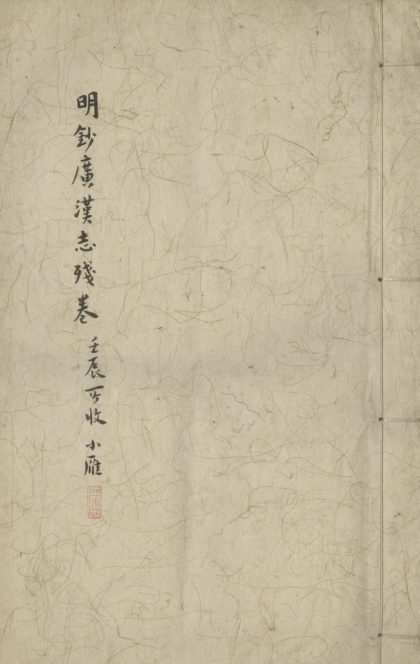 明鈔廣漢志殘卷 壬辰所收 小雁